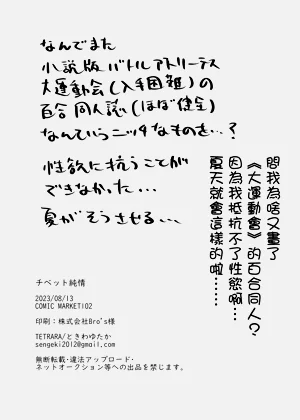 なんでまた
小説版バトルアスリーテス
大運動会(入手困難)の
百合同人誌(ほぼ健全)
なんていうニッチなものを…?
性欲に抗うことが
できなかった…
夏がそうさせる…
問我為啥又畫了
《大運動會》的百合同人?
因為我抵抗不了性慾啊…
夏天就會這樣的啦……
チベット純情
2023/08/13
COMIC MARKET102
印刷:株式会社Bro's様
TETRARA/ときわゆたか
sengeki2012@gmail.com
無断転載・違法アップロード・
ネットオークション等への出品を禁じます。